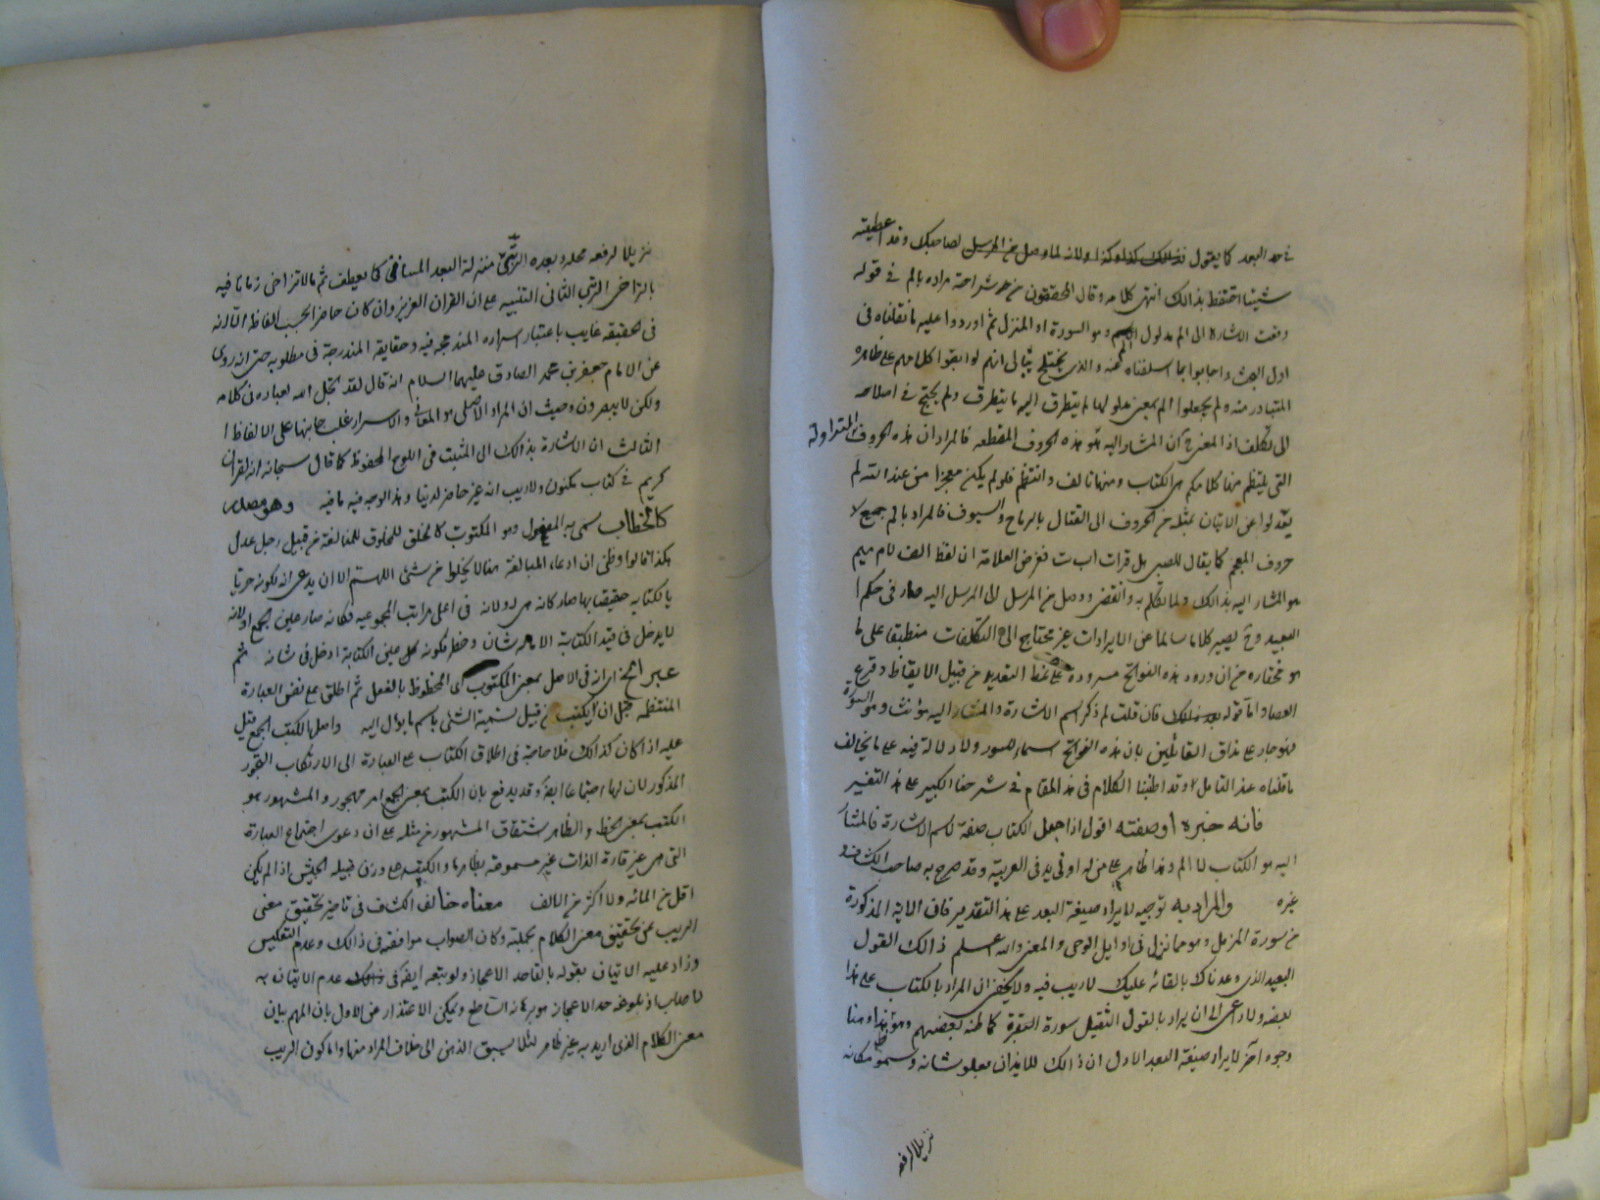 في حد البعد كما يقول لصاحبك وقد اعطيته
شيئا احتفظ بذالك انتهى كلامه وقال المحققون من شراحه مراده بالم في قوله
وقعت الاشارة الى الم مدلول وهو السورة او المنزل ثم اوردوا عليه ما نقلناه في
اول البحث واجابوا بما اسلفناه عنه والذي يختلج ببالي انهم لو ابقوا كلامهم على ظاهره
المتبادر منه ولم يجعلوا الم بمعنى مدلولها لم يتطرق اليه ما يتطرق ولم يحتج في اصلاحه
الى تكلف اذ المعنى ح ان المشار اليه هو هذه الحروف المقطعه فالمراد ان هذه الحروف المتداولة
التي ينتظم منها كلامكم هي الكتاب ومنها تالف وانتظم فلو لم يكن معجزا من عند الله لم
يعدلوا عن الاتيان بمثله من الحروف الى القتال بالرماح والسيوف فالمراد بالم جميع
حروف المعجم كما يقال للصبي هل قرات اب ت فغرض العلامة ان لفظ الف لام ميم
هو المشار اليه بذالك ولما تكلم به وانقضى ووصل من المرسل الى المرسل اليه صار في حكم
البعيد وح يصير كلاما سالما عن الايرادات غير محتاج الى التكلفات منطبقا على ما
هو مختاره من ان ورود هذه الفواتح مسرودة على نمط التعديد من قبيل الايقاظ وقرع
العصا واما قوله بعد ذلك فان قلت لم ذكر اسم الاشارة والمشار اليه مؤنث وهو السورة
فهو جار على مذاق القائلين بان هذه الفواتح اسماء للسور ولا دلالة فيه على ما يخالف
ما قلناه عند التامل وقد اطنبنا الكلام في هذا المقام في شرحنا الكبير على هذا التفسير
فانه خبره او صفته اقول اذا جعل الكتاب صفة لاسم الاشارة فالمشار
اليه هو الكتاب لا الم وهذا ظاهر على من له ادنى يد في العربية وقد صرح به صاحب الكشاف و
غيره والمراد به توجيه لايراد صيغة البعد على هذا التقدير فان الاية المذكورة
من سورة المزمل وهو مما نزل في اوايل الوحي والمعنى والله اعلم ذالك القول
البعيد الذي وعدناك بالقائه عليك لاريب فيه ولا يخفى ان المراد بالكتاب على هذا
بعضه ولا داعي الى ان يراد بالقول الثقيل سورة البقرة كما ظنه بعضهم وههنا
وجوه آخر لايراد صيغة البعد الاول ان ذالك للايذان بعلو شانه وسمو مكانه
تنزيلا لرفعه
تنزيلا لرفعه محله وبعده الرتبي منزلة البعد المسافتي كما يعطف ثم مالا تراخي زمانا فيه
بالتراخي الرتبي الثاني التنبيه على ان القران العزيز وان كان حاضرا بحسب الفاظه الا انه
في الحقيقه غايب باعتبار اسراره المندمجة فيه وحقايقه المندرجة في مطاويه حتى انه روى
عن الامام جعفر بن محمد الصادق عليهما السلام انه قال لقد تجلى الله لعباده في كلامه
ولكن لا يبصرون وحيث ان المراد الاصلي هو المعاني والاسرار غلب جانبها على الالفاظ
الثالث ان الاشارة بذالك الى المثبت في اللوح المحفوظ كما قال سبحانه انه لقران
كريم في كتاب مكنون ولاريب انه غير حاضر لدينا وهذا الوجه فيه ما فيه وهو مصدر
كالخطاب سمى به المفعول وهو المكتوب كالخلق للمخلوق للمبالغة من قبيل رجل عدل
هكذا قالوا وظني ان ادعاء المبالغة هنا لا يخلوا من شئ اللهم الا ان يدعى انه لكونه حريا
بالكتابه حقيقا بها صار كانه هي او لانه في اعلى مراتب المجموعيه فكانه صار عين الجمع او لانه
لا يدخل في قيد الكتابة الا ما له شان وخطر فكونه عين الكتابة ادخل في شانه ثم
عبر الخ اي انه في الاصل بمعنى المكتوب اي المخطوط بالفعل ثم اطلق على نفس العبارة
المنتظمه قبل ان يكتب من قبيل تسمية الشئ باسم ما يؤل اليه واصل الكتب الجمع قيل
عليه اذا كان كذالك فلا حاجة في اطلاق الكتاب على العبارة الى الارتكاب التجوز
المذكور لان لها اجتماعا ايضا وقد يدفع بان الكتب بمعنى الجمع امر مهجور والمشهور هو
الكتب بمعنى الخط والظاهر اشتقاق المشهور من مثله على ان دعوى اجتماع العبارة
التي هي غير قارة الذات غير مسموعة بظاهرها والكتيبه على وزن قبيله الجيش اذا لم يكن
اقل من المائه ولا اكثر من الالف معناه خالف الكشاف في تاخير تحقيق معنى
الريب عن تحقيق معنى الكلام بجملته وكان الصواب موافقته في ذالك وعدم التعكيس
وزاد عليه الاتيان بقوله بالغا حد الاعجاز ولو تبعه ايضا في عدم الاتيان به
لاصاب اذ بلوغه حد الاعجاز هو برهانه الساطع ويمكن الاعتذار عن الاول بان المهم بيان
معنى الكلام الذي اريد به غير ظاهره لئلا يسبق الذهن الى خلاف المراد منها واما كون الريب